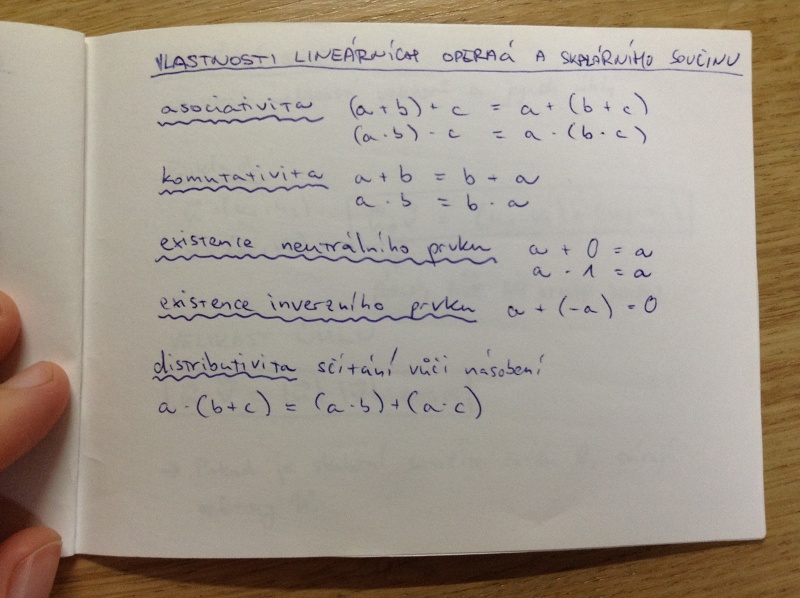 VLASTNOSTI LINEÁRNÍCH OPERACÍ A SKALÁRNÍHO SOUČINU
asociativita (a+b)+c = a+(b+c)
(a·b)·c = a·(b·c)
komutativita a+b = b+a
a·b = b·a
existence neutrálního prvku a+0=a
a·1=a
existence inverzního prvku a+(-a)=0
distributivita sčítání vůči násobení
a·(b+c) = (a·b)+(a·c)